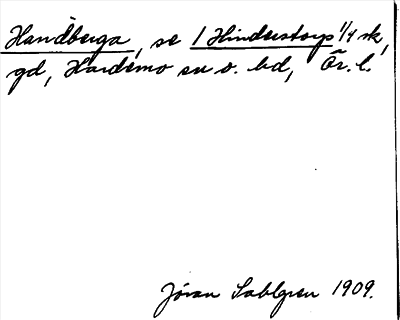 Handberga, se 1 Hinderstorp 1/4 sk,
gd, Hardemo sn o. hd, Ör. l.
Jöran Sahlgren 1909.